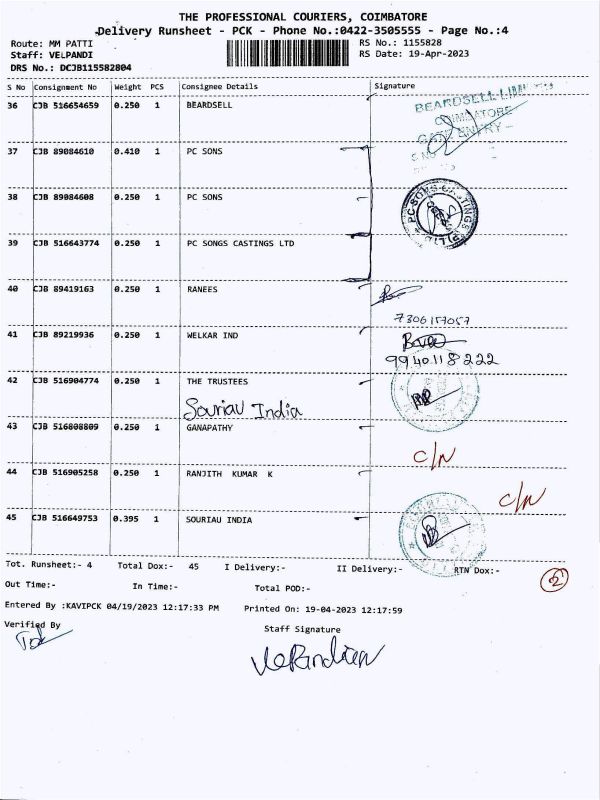 THE PROFESSIONAL COURIERS, COIMBATORE
Delivery Runsheet - PCK - Phone No.:0422-3505555 - Page No.:4
Route: MM PATTI
RS No.: 1155828
Staff: VELPANDI
RS Date: 19-Apr-2023
DRS No.: DCJB115582804
S No Consignment No Weight PCS Consignee Details Signature
36 CJB 516654659 0.250 1 BEARDSELL
BEARDSELL LIMITED
COIMBATORE
GATE ENTRY
37 CJB 89084610 0.410 1 PC SONS
38 CJB 89084608 0.250 1 PC SONS
PC SONS CASTINGS
39 CJB 516643774 0.250 1 PC SONGS CASTINGS LTD
40 CJB 89419163 0.250 1 RANEES
7306157057
41 CJB 89219936 0.250 1 WELKAR IND
9940118222
42 CJB 516904774 0.250 1 THE TRUSTEES
Souriau India
43 CJB 516808809 0.250 1 GANAPATHY
C/N
44 CJB 516905258 0.250 1 RANJITH KUMAR K
C/N
45 CJB 516649753 0.395 1 SOURIAU INDIA
Tot. Runsheet:- 4 Total Dox:- 45 I Delivery:- II Delivery:- RTN Dox:- 2
Out Time:- In Time:- Total POD:-
Entered By :KAVIPCK 04/19/2023 12:17:33 PM Printed On: 19-04-2023 12:17:59
Verified By
Staff Signature
VelPandian